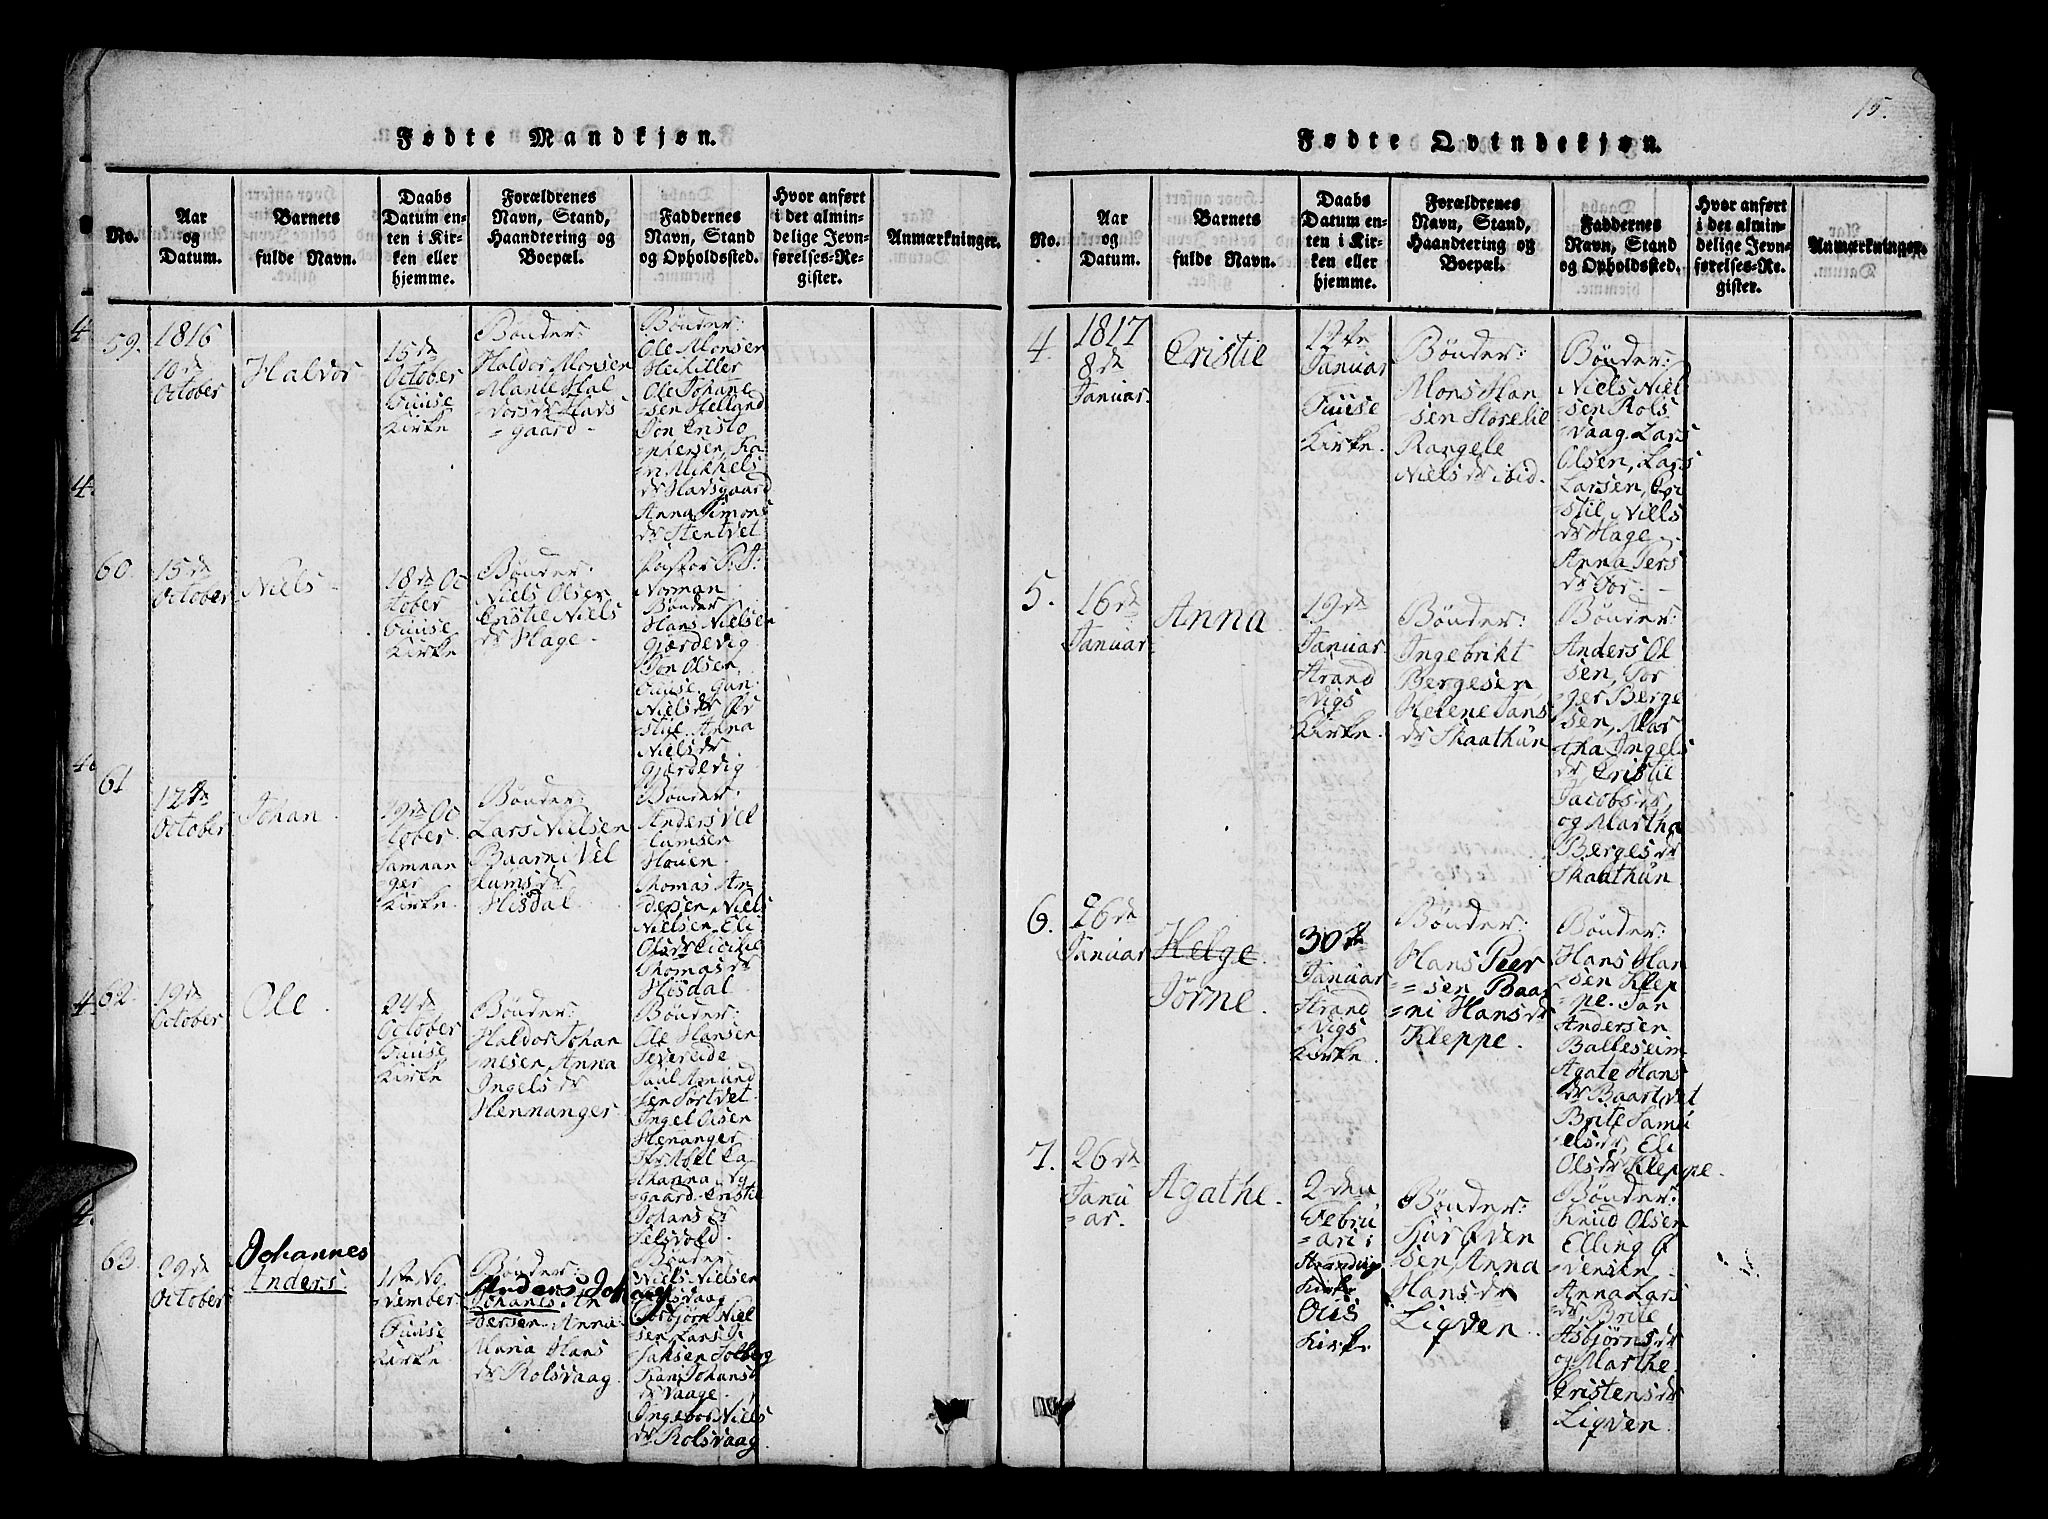 15.
Fødte Mandkjøn.
No.
Aar
og
Datum.
Barnets
fulde Navn.
Daabs
Datum en-
ten i Kir-
ken eller
hjemme.
Forældrenes
Navn, Stand,
Haandtering og
Boepæl.
Faddernes
Navn, Stand
og Opholdssted.
Hvor anført
i det almin-
delige Jevn-
førelses-Re-
gister.
Anmærkninger.
59.
1816
10de
October
Halvor
15de
October
Fuuse
Kirke
Bønder:
Haldor Monsen
Marite Hal
vorsdr Havs
=gaard-
Bønder:
Ole Monsen
Ole Johanne
sen Helland
Jon Cristo
phersen, Ka-
ri Mikkels
dr Havsgaard
Anna Simons
dr Stentvet
60.
15de
October
Niels
18de Oc
tober
Fuuse
Kirke
Bønder:
Niels Olsen
Cristie Niels
dr Hage.
Pastor
Norman
Bønder
Hans Nielsen
Gjerdevig
Jon Olsen
Fuuse, Gun
Nielsdr
Anna
Nielsdr
Gjerdevig
61
17de
October
Johan.
29de Oc
tober.
Samnan
ger
Kirke.
Bønder:
Lars Nielsen
Baarni Vel
lumsdr
Hisdal
Bønder:
Anders Vel
lumsen
Houen.
Thomas An-
dersen, Niels
Nielsen, Eli
Olsdr
Thomasdr
Hisdal
62.
19de
October
Ole.
24de
October
Fuuse
Kirke
Bønder:
Haldor Johan
nesen, Anna
Ingelsdr
Hennanger
Bønder:
Ole Hansen
Severeide
Paul Amund
sen Sørtvet
Ingel Olsen
Henanger
Johansdr
63.
29de
October
Johannes
Anders.
1ste No
vember
Fuuse
Kirke
Bønder:
Anders Joh
Johanes An
dersen. Anna
Maria Hans
dr Rolsvaag.
Bønder
Niels Nielsen
Rolsvaag
Asbjørn Niel
sen
Solberg
Kari Johans
dr Vaage.
Ingebor Niels
dr Rolsvaag.
Fødte Qvindekjøn.
No.
Aar
og
Datum.
Barnets
fulde Navn.
Daabs
Datum en-
ten i Kir-
ken eller
hjemme.
Forældrenes
Navn, Stand,
Haandtering og
Boepæl.
Faddernes
Navn, Stand
og Opholdssted.
Hvor anført
i det almin-
delige Jevn-
førelses-Re-
gister.
Anmærkninger.
4.
1817
8de
Januar.
Cristie
12te
Januar
Fuuse
Kirke.
Bønder:
Mons Han
sen Storelie
Rangele
Nielsdr ibid.
Bønder:
Niels Niel
sen Rols
vaag. Lars
Olsen, Lars
Larsen, Cri
stie Niels
dr Hage.
Anna Pers
dr
5.
16de
Januar
Anna
19de
Januar
Strand
=vigs
Kirke.
Bønder:
Ingebrikt
Bergesen,
Helene Jans
dr Skaathun
Bønder:
Anders Ol
sen, Tor
ger Berge
sen, Mar
tha Ingels
dr Cristie
Jacobsdr,
og Martha
Bergesdr
Skaathun
6.
26de
Januar
Helge.
Jørne.
30te
Januar
Strand
=vigs
Kirke.
Bønder:
Hans Peer
=sen Baar
=ni Hansdr
Kleppe.
Bønder:
Hans Han
sen Klep
=pe. Jan
Andersen
Balleseim
Agate Hans
dr Baartvet
Brite Samu
elsdr, Eli
Olsdr Kleppe.
7.
26de
Janu
=ar.
Agathe.
2den
Febru
=ari i
Strandvigs
Kirke
Ous
Kirke
Bønder:
Sjur Øven
sen, Anna
Hansdr
Ligven.
Bønder:
Knud Olsen
Elling Ø
vensen
Anna Lars
dr Brite
Asbjørnsdr
og Marthe
Cristensdr
Ligven.